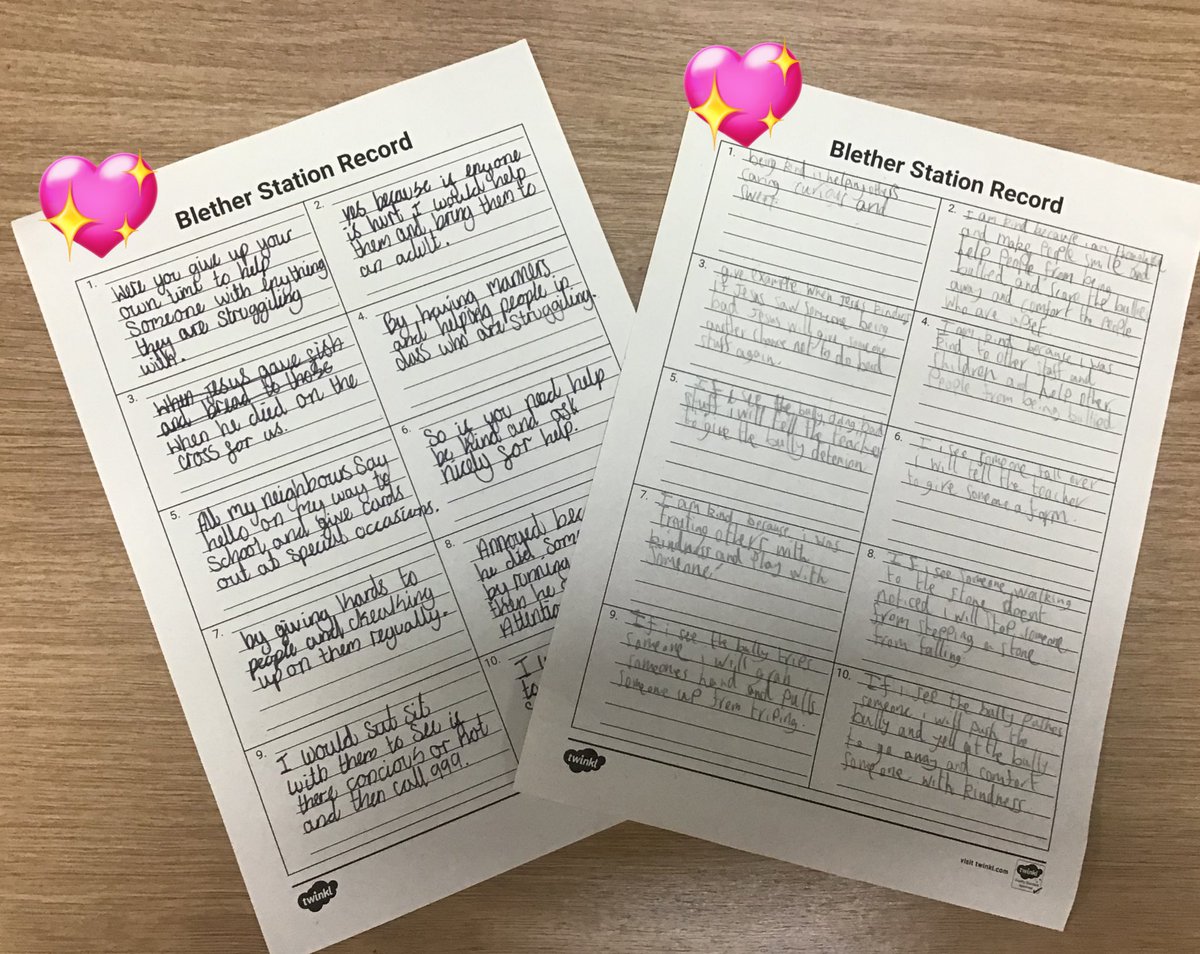 Blether Station Record
1.
Were you give up your
own time to help
Someone with enything
they are struggling
with.
2.
yes because if enyone
is hurt I would help
them and bring them to
an adult.
3.
When Jesus gave fish
and bread to those
when he died on the
cross for us.
4.
By having manners
and helping people in
class who are struggling.
5.
All my neighbours say
hello on my way to
school and give cards
out at special occasions.
6.
So if you need help
be kind and ask
nicely for help.
7.
by giving hards to
people and cheaking
up on them regually.
8.
Annoyed bec
he did som
by running
then he s
Attention
9.
I would sat sit
with them to see if
there concious or not
and then call 999.
10.
I w
to
twinkl
Blether Station Record
1.
being kind is helping others
caring curious and
sweet.
2.
I am kind because i am
and make people smile and
help people from being
bullied and scare the bullie
away and comfort the people
who are upset.
3.
give example when Jesus kindnes
if Jesus saw someone being
bad Jesus will give someone
another chance not to do bad
stuff again.
4.
I am kind because i was
kind to other staff and
children and help other
people from being bullied
5.
If i see the bully doing bad
stuff i will tell the teacher
to give the bully detension
6.
I i see someone fall over
i will tell the teacher
to give someone a form.
7.
I am kind because i was
treating others with
kindness and play with
someone.
8.
If i see someone walking
to the stone doent
noticed i will stop someone
from stepping a stone
from falling
9.
If i see the bully trips
someone i will grab
someones hand and pulls
someone up from triping.
10.
If i see the bully pushes
someone i will push the
bully and yell at the bully
to go away and comfort
someone with kindness
twinkl
visit twinkl.com
twinkl